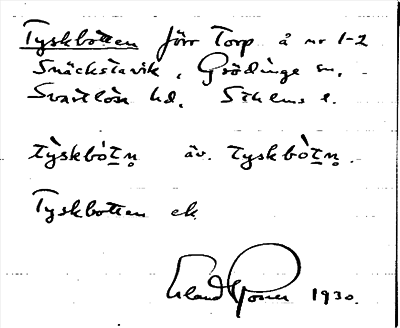 Tyskbotten förr Torp å nr 1-2
Snäckstavik, Grödinge sn.
Svartlösa hd. Sthlms l.
tỳskbòt̲n̥ äv. tyskbòt̲n̥.
Tyskbotten ek.
Erland Rosell 1930.